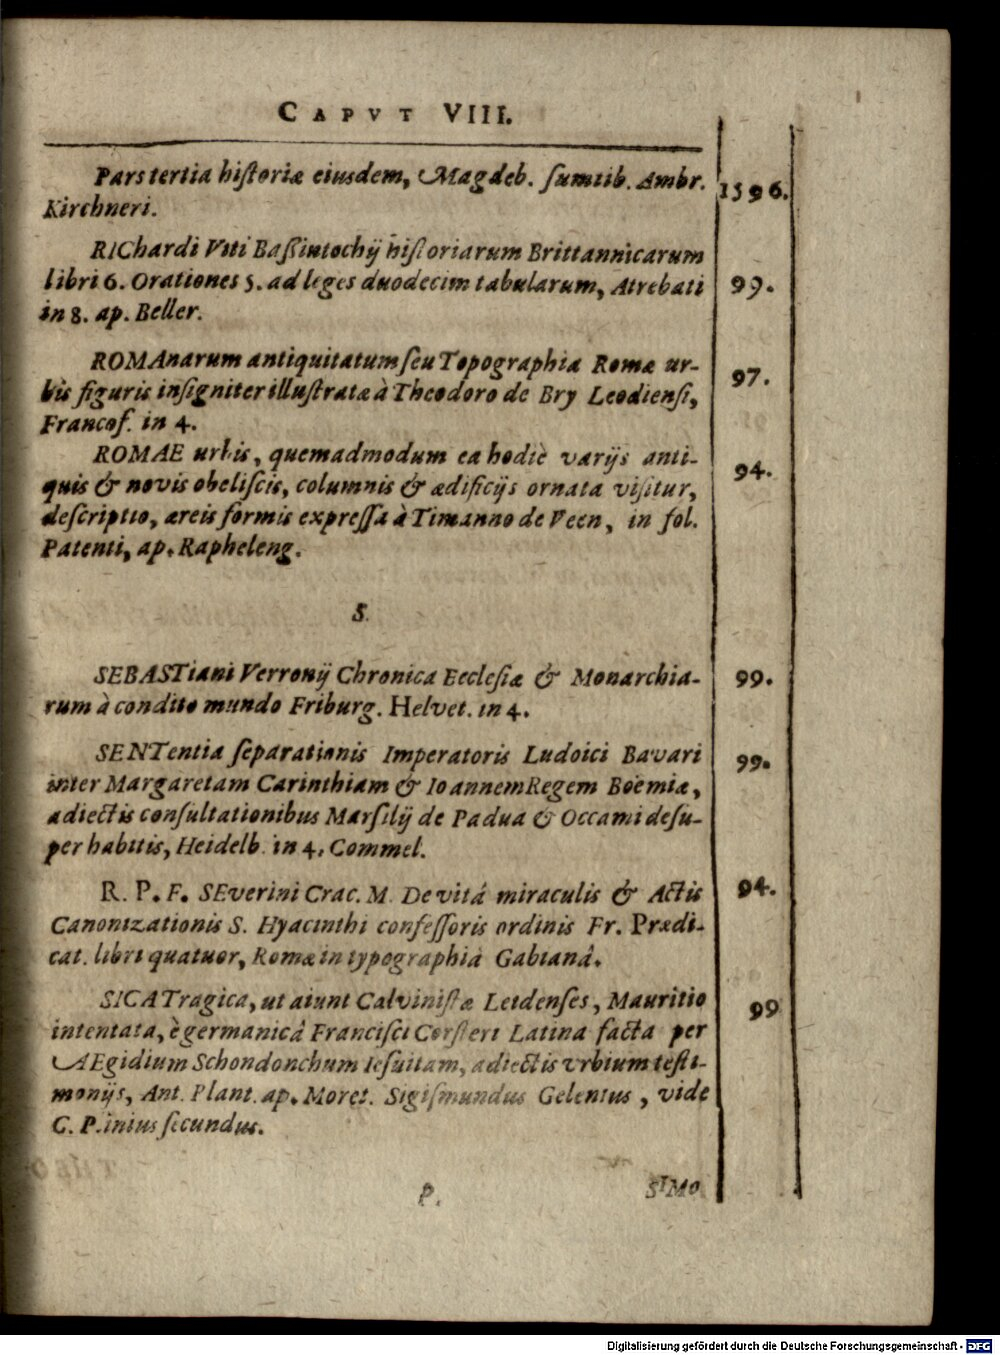 CAPVT VIII.
Pars tertia hiſtoriæ eiusdem, Magdeb. ſumtib. Ambr. 1596.
Kirchneri.
RIChardi Viti Baſſintochij hiſtoriarum Brittannicarum
libri 6. Orationes 5. ad leges duodecim tabularum, Atrebati 99.
in 8. ap. Beller.
ROMAnarum antiquitatum ſeu Topographia Romæ ur-
bis figuris inſigniter illuſtratæ à Theodoro de Bry Leodienſi, 97.
Francof. in 4.
ROMAE urbis, quemadmodum ea hodiè varijs anti-
quis & novis obeliſcis, columnis & ædificijs ornata viſitur, 94.
deſcriptio, æreis formis expreſſa à Timanno de Veen, in fol.
Patenti, ap. Rapheleng.
S.
SEBASTiani Verronij Chronica Eccleſiæ & Monarchia- 99.
rum à condito mundo Friburg. Helvet. in 4.
SENTentia ſeparationis Imperatoris Ludoici Bavari
inter Margaretam Carinthiam & Ioannem Regem Boëmiæ, 99.
adiectis conſultationibus Marſilij de Padua & Occami deſu-
per habitis, Heidelb. in 4. Commel.
R. P. F. SEverini Crac. M. De vitâ miraculis & Actis 94.
Canonizationis S. Hyacinthi confeſſoris ordinis Fr. Prædi-
cat. libri quatuor, Romæ in typographiâ Gabianâ.
SICA Tragica, ut aiunt Calviniſtæ Leidenſes, Mauritio 99
intentata, è germanicâ Franciſci Corſteri Latina facta per
AEgidium Schondonchum Ieſuitam, adiectis vrbium teſti-
monijs, Ant. Plant. ap. Moret. Sigiſmundus Gelenius, vide
C. Plinius ſecundus.
P. SIMo
Digitalisierung gefördert durch die Deutsche Forschungsgemeinschaft - DFG